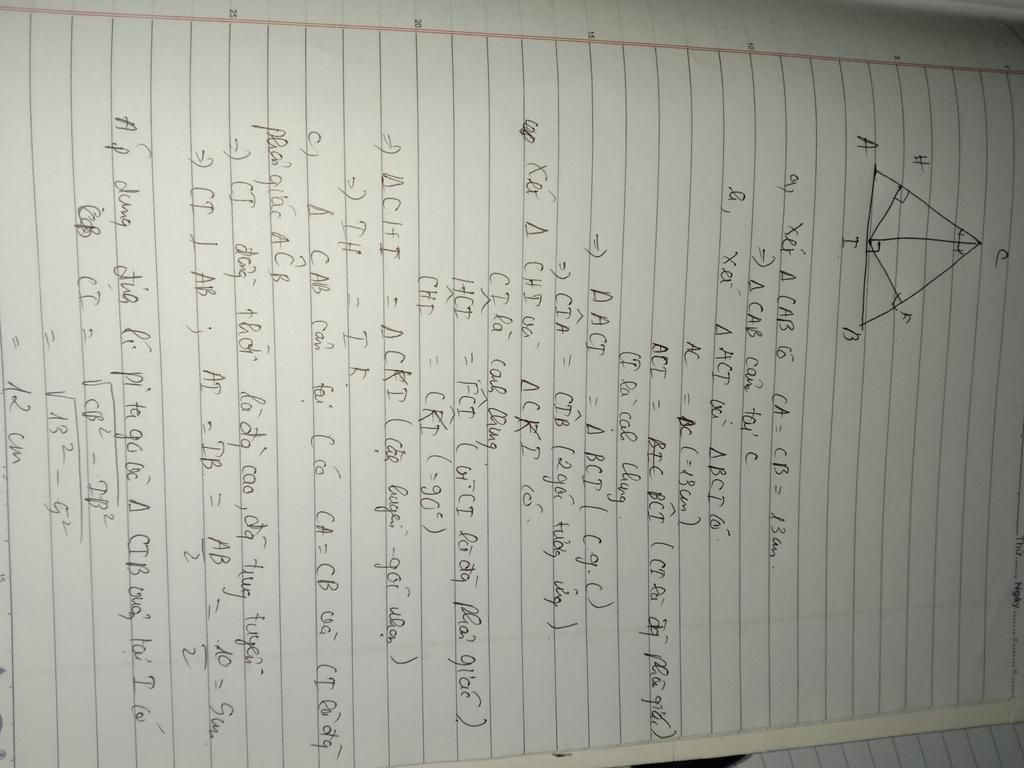 Thứ....... Ngày.......
C
H
K
A
I
B
a, Xét Δ CAB có CA = CB = 13cm.
=) Δ CAB cân tại C
b, Xét Δ ACI và Δ BCI có
AC = BC (=13cm)
ACI = BCI (CI là đg phân giác)
CI là cạnh chung
=) Δ ACI = Δ BCI (c g c)
=) CIA = CIB (2 góc tương ứng)
Xét Δ CHI và Δ CKI có
CI là cạnh chung
HCI = KCI (vì CI là đg phân giác)
CHI = CKI (=90°)
=) Δ CHI = Δ CKI (cạnh huyền - góc nhọn)
=) IH = IK
c, Δ CAB cân tại C có CA = CB và CI là đg
phân giác ACB
=) CI đồng thời là đg cao, đg trung tuyến
=) CI ⊥ AB ; AI = IB = AB/2 = 10/2 = 5cm
Áp dụng định lí pi ta go và Δ CIB vuông tại I có
CI = √CB² - IB²
= √13² - 5²
= 12 cm